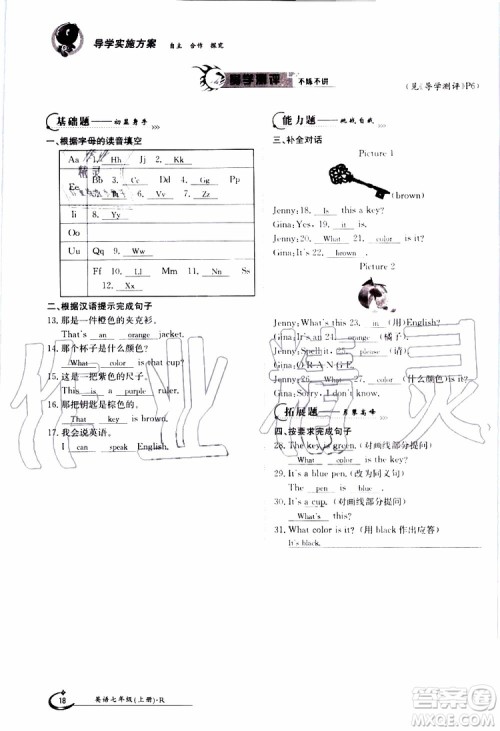 导学实施方案 自主 合作 探究
不练不讲
(见《导学测评》P6)
基础题 初显身手
一、根据字母的读音填空
Aa 1. Hh Jj 2. Kk
Ee 3. Cc Dd Gg Pp
Tt 6. Vv 7. Zz
Ii 8. Yy
Oo
Uu Qq 9. Ww
Ff 10. Ll Mm 11. Nn Ss
12. Xx
二、根据汉语提示完成句子
13. 那是一件橙色的夹克衫。
That's an orange jacket.
14. 那个杯子是什么颜色?
What color is that cup?
15. 这是一把紫色的尺子。
This is a purple ruler.
16. 那把钥匙是棕色的。
That key is brown.
17. 我会说英语。
I can speak English.
能力题 挑战自我
三、补全对话
Picture 1
(brown)
Jenny: 18. Is this a key?
Gina: Yes, 19. it is.
Jenny: 20. What color is it?
Gina: It's 22. brown.
Picture 2
Jenny: What's this 23. in (用)English?
Gina: It's 24. an orange (橘子).
Jenny: Spell it, 25. please (请).
Gina: O-R-A-N-G-E.
Jenny: 26. What color (什么颜色) is it?
Gina: Sorry, I don't know.
拓展题 勇攀高峰
四、按要求完成句子
28. The key is green. (对画线部分提问)
What color is the key?
29. It's a blue pen. (改为同义句)
The pen is blue.
30. It's a cup. (对画线部分提问)
What's this?
31. What color is it? (用 black 作出应答)
It's black.
18 英语七年级(上册)·R
作业精灵